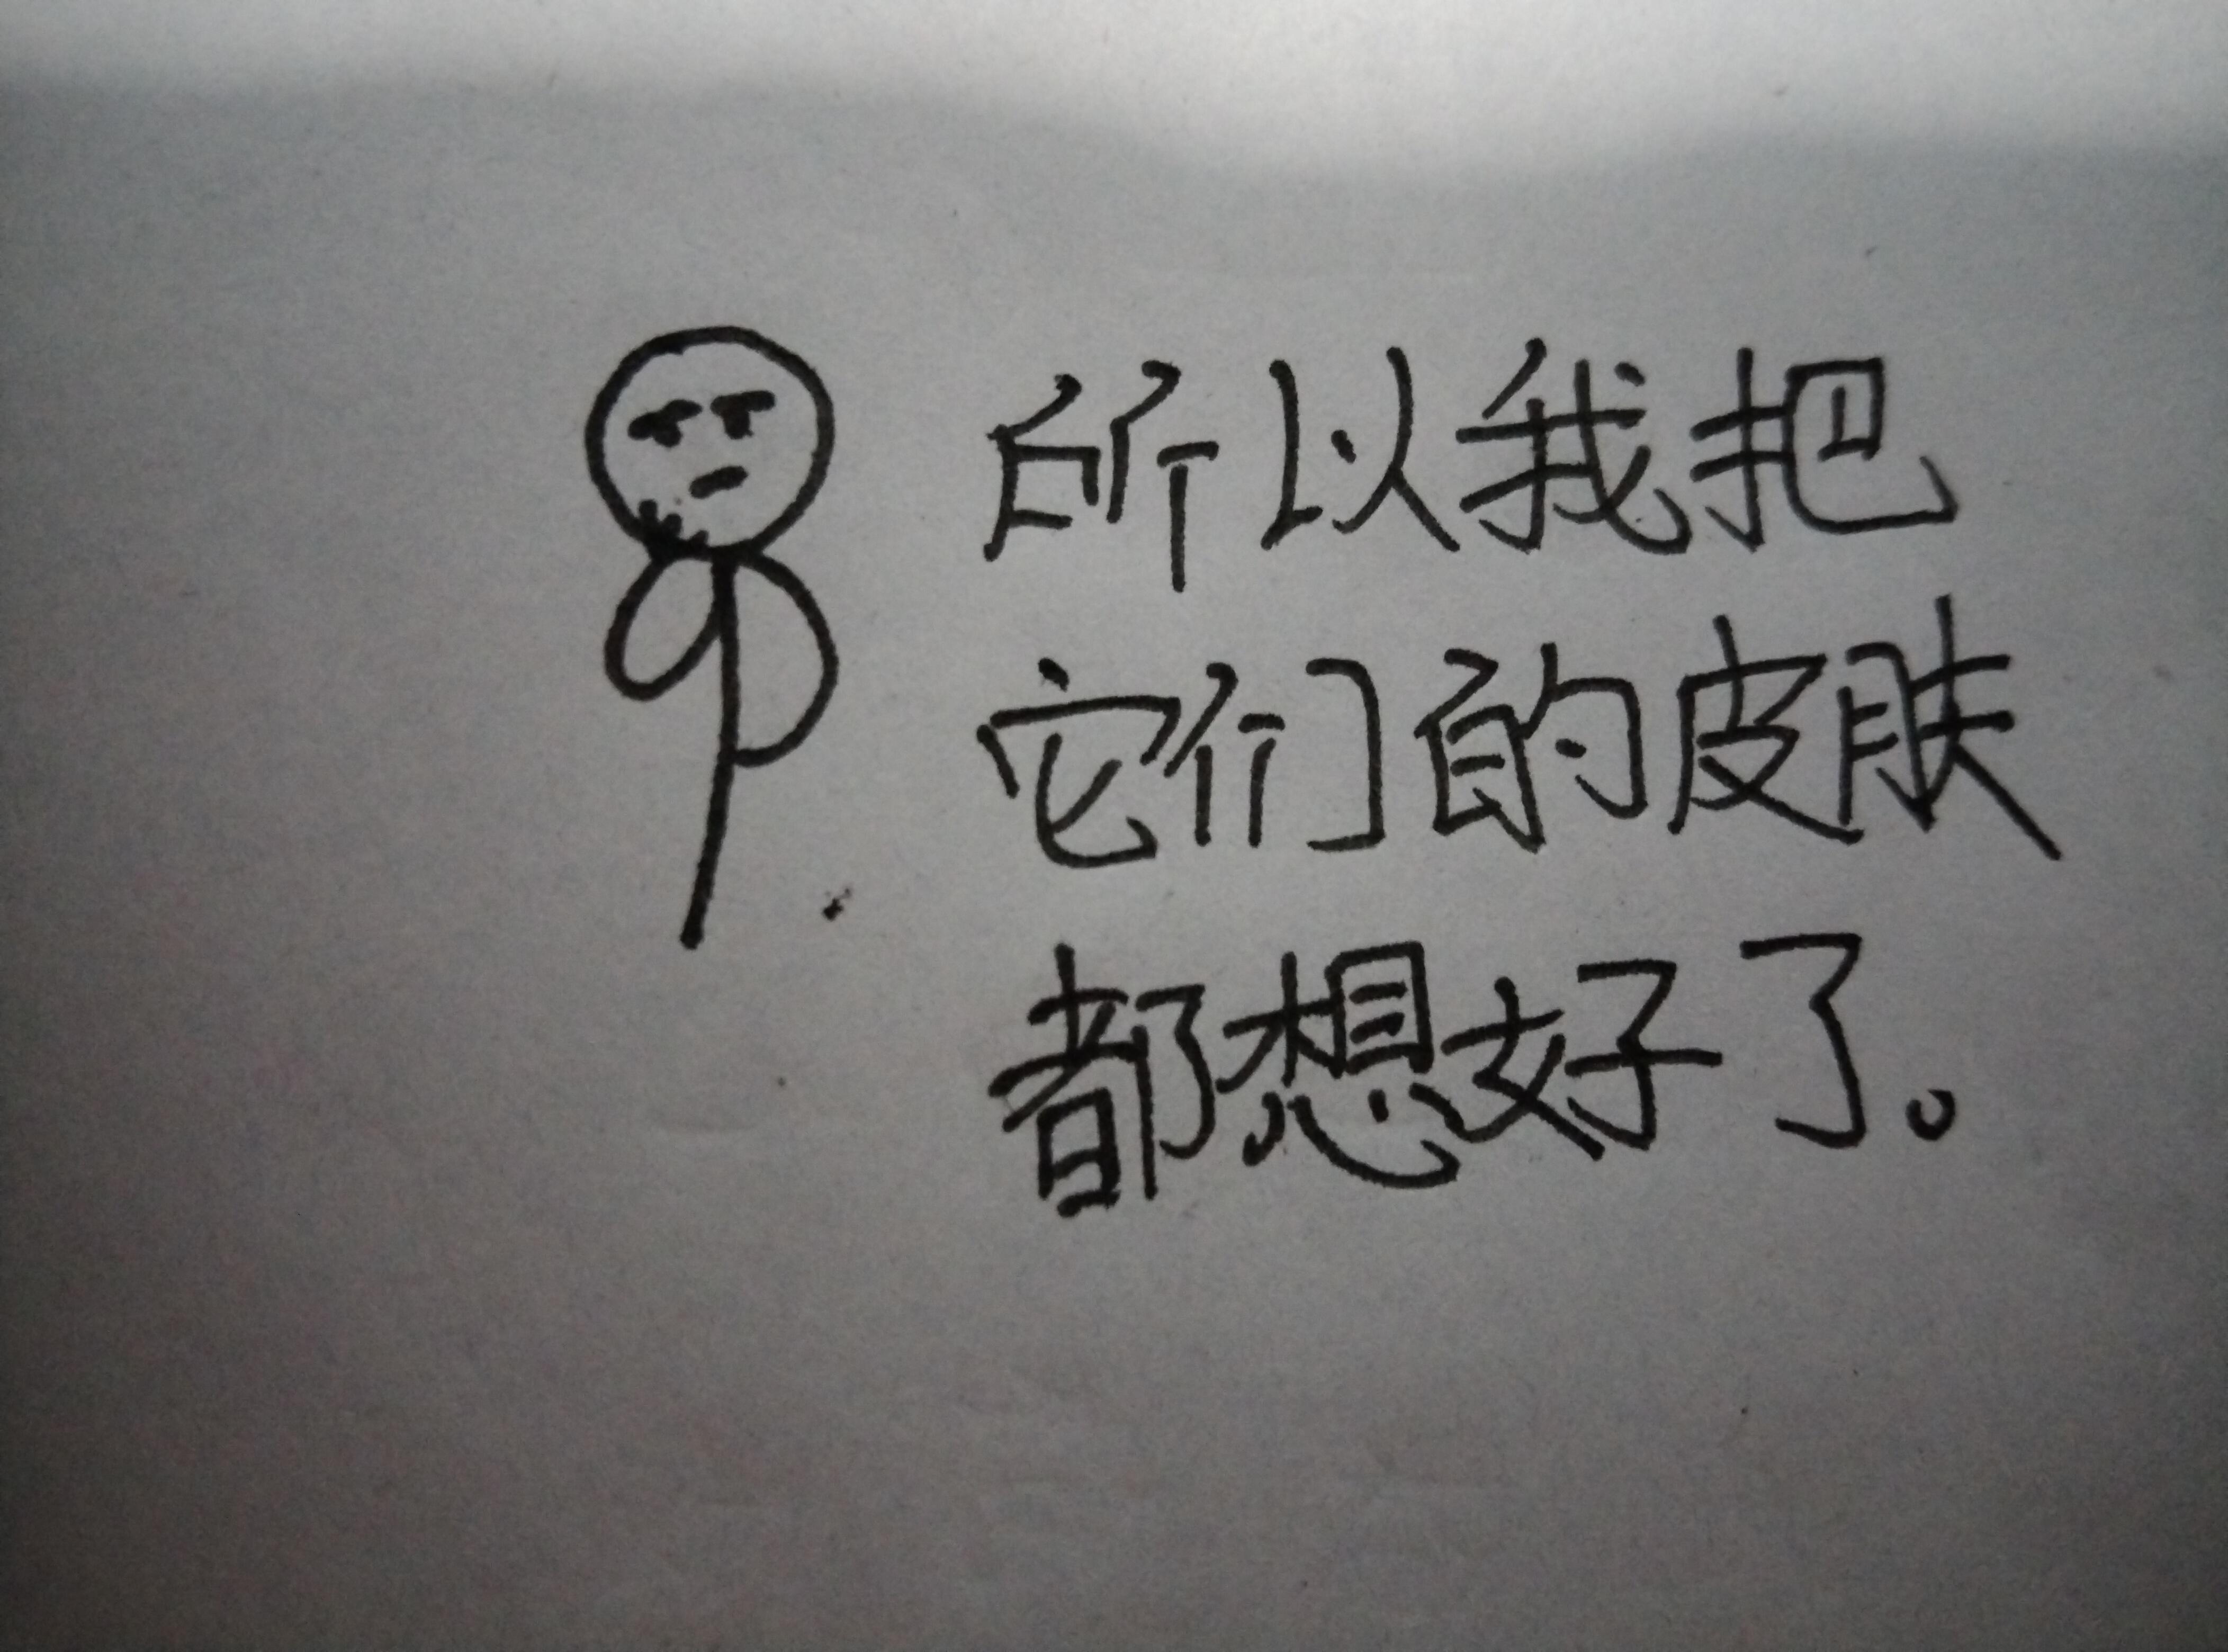 所以我把
它们的皮肤
都想好了。